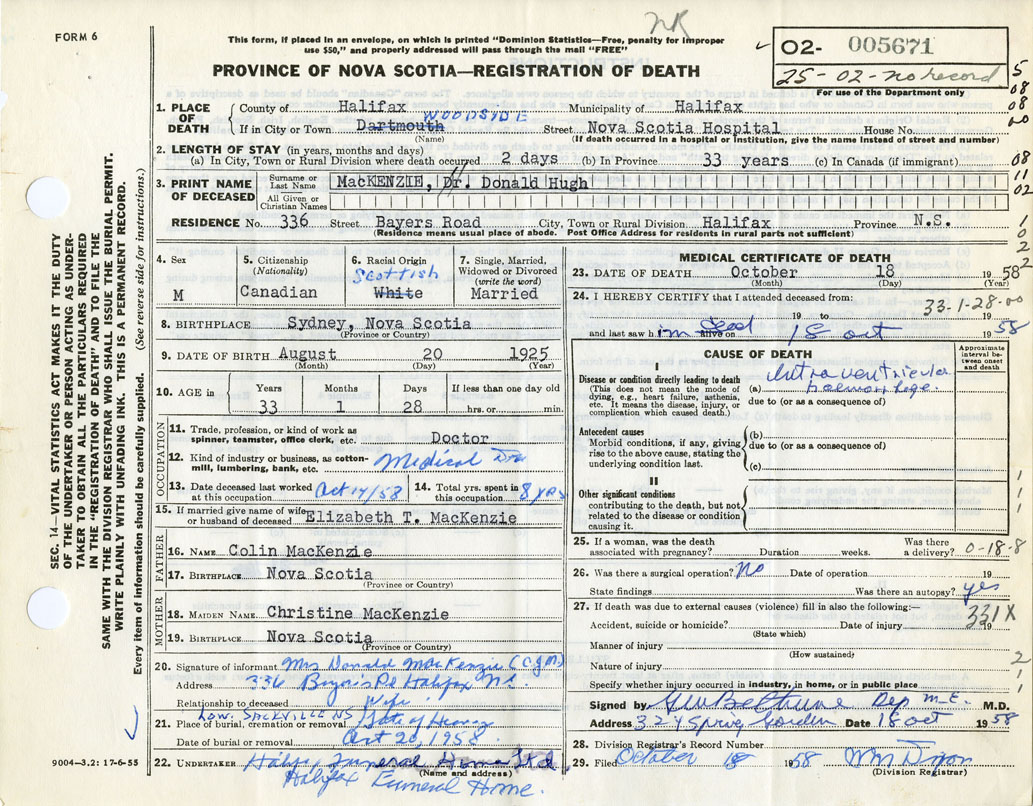 FORM 6
NK
This form, if placed in an envelope, on which is printed "Dominion Statistics—Free, penalty for improper
use $50," and properly addressed will pass through the mail "FREE"
02- 005671
25-02-no record
For use of the Department only
PROVINCE OF NOVA SCOTIA—REGISTRATION OF DEATH
5
08
08
00
08
11
02
1
0
2
1. PLACE OF DEATH
County of Halifax Municipality of Halifax
WOODSIDE
If in City or Town Dartmouth Street Nova Scotia Hospital House No.
(Name) (If death occurred in a hospital or institution, give the name instead of street and number)
2. LENGTH OF STAY (in years, months and days)
(a) In City, Town or Rural Division where death occurred 2 days (b) In Province 33 years (c) In Canada (if immigrant)
3. PRINT NAME OF DECEASED
Surname or Last Name MacKENZIE, Dr. Donald Hugh
All Given or Christian Names
RESIDENCE No. 336 Street Bayers Road City, Town or Rural Division Halifax Province N.S.
(Residence means usual place of abode. Post Office Address for residents in rural parts not sufficient)
4. Sex
M
5. Citizenship
(Nationality)
Canadian
6. Racial Origin
Scottish
White
7. Single, Married, Widowed or Divorced
(write the word)
Married
8. BIRTHPLACE Sydney, Nova Scotia
(Province or Country)
9. DATE OF BIRTH August 20 1925
(Month) (Day) (Year)
10. AGE in
Years Months Days If less than one day old
33 1 28 hrs. or min.
OCCUPATION
11. Trade, profession, or kind of work as
spinner, teamster, office clerk, etc. Doctor
12. Kind of industry or business, as cotton-
mill, lumbering, bank, etc. Medical Dr
13. Date deceased last worked
at this occupation Oct 17/58
14. Total yrs. spent in
this occupation 8 yrs
15. If married give name of wife
or husband of deceased Elizabeth T. MacKenzie
FATHER
16. NAME Colin MacKenzie
17. BIRTHPLACE Nova Scotia
(Province or Country)
MOTHER
18. MAIDEN NAME Christine MacKenzie
19. BIRTHPLACE Nova Scotia
(Province or Country)
20. Signature of informant Mrs Donald MacKenzie
Address 336 Halifax NS.
Relationship to deceased Wife
LOW. SACKVILLE NS
21. Place of burial, cremation or removal Gate of Heaven
Date of burial or removal Oct 20, 1958
22. UNDERTAKER Funeral Home Ltd
(Name and address)
Halifax Funeral Home.
9004—3.2: 17-6-55
SEC. 14—VITAL STATISTICS ACT MAKES IT THE DUTY
OF THE UNDERTAKER OR PERSON ACTING AS UNDER-
TAKER TO OBTAIN ALL THE PARTICULARS REQUIRED
IN THE "REGISTRATION OF DEATH" AND TO FILE THE
SAME WITH THE DIVISION REGISTRAR WHO SHALL ISSUE THE BURIAL PERMIT.
WRITE PLAINLY WITH UNFADING INK. THIS IS A PERMANENT RECORD.
Every item of information should be carefully supplied. (See reverse side for instructions.)
MEDICAL CERTIFICATE OF DEATH
23. DATE OF DEATH October 18 1958 2
(Month) (Day) (Year)
24. I HEREBY CERTIFY that I attended deceased from:
33-1-28-00
19 to 19
and last saw him dead alive on 18 oct 1958
CAUSE OF DEATH
Approximate interval between onset and death
I
Disease or condition directly leading to death
(This does not mean the mode of
dying, e.g., heart failure, asthenia,
etc. It means the disease, injury, or
complication which caused death.)
(a) Intraventricular
haemorrhage.
due to (or as a consequence of)
Antecedent causes
Morbid conditions, if any, giving
rise to the above cause, stating the
underlying condition last.
(b)
due to (or as a consequence of)
(c)
II
Other significant conditions
contributing to the death, but not
related to the disease or condition
causing it.
1
1
1
25. If a woman, was the death
associated with pregnancy? Duration weeks. Was there
a delivery? 0-18-8
26. Was there a surgical operation? No Date of operation 19
State findings Was there an autopsy? yes
27. If death was due to external causes (violence) fill in also the following:—
331X
Accident, suicide or homicide? Date of injury 19
(State which)
Manner of injury
(How sustained)
Nature of injury
2
1
1
Specify whether injury occurred in industry, in home, or in public place
Signed by Bethune Dep M.E. M.D.
Address 324 Spring Garden Date 18 oct 1958
28. Division Registrar's Record Number
29. Filed October 18 1958 Wm Dixon
(Division Registrar)